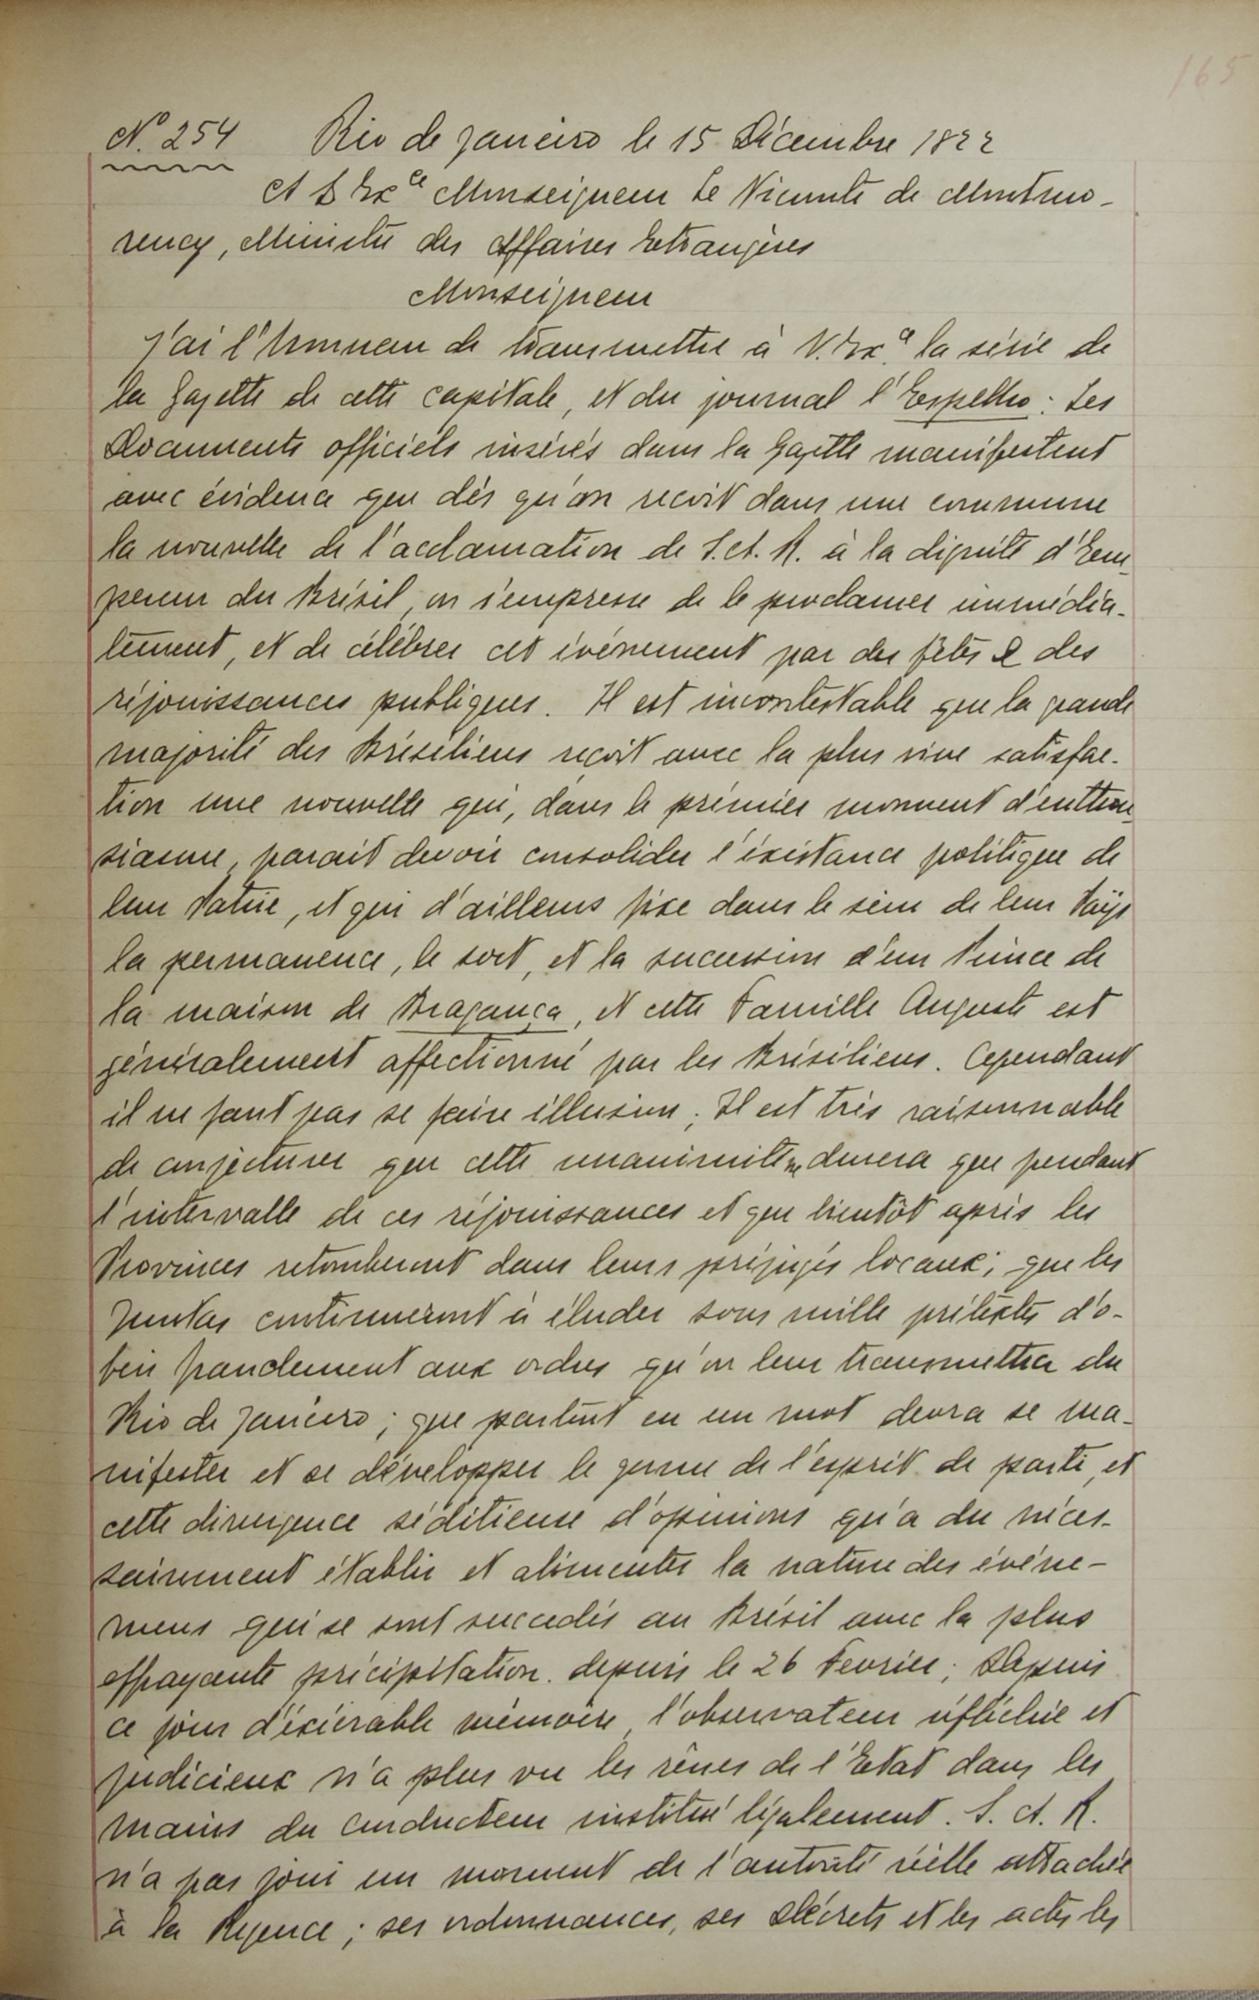 165
N.º 254 Rio de Janeiro le 15 Décembre 1822
A S Exce Monseigneur Le Vicomte de Montmo-
rency, Ministre des Affaires Etrangères
Monseigneur
J'ai l'honneur de transmettre à V. Exa. la série de
la Gazette de cette capitale, et du journal l'Espelho: Les
Documents officiels insérés dans la Gazette manifestent
avec évidence que dès qu'on reçoit dans une commune
la nouvelle de l'acclamation de S. A. R. à la dignité d'Em-
pereur du Brésil, on s'empresse de le proclamer immédia-
tement, et de célébrer cet événement par des fêtes & des
réjouissances publiques. Il est incontestable que la grande
majorité des Brésiliens reçoit avec la plus vive satisfac-
tion une nouvelle qui, dans le prémier moment d'enthou-
siasme, parait devoir consolider l'éxistance politique de
leur Patrie, et qui d'ailleurs fixe dans le sein de leur Païs
la permanence, le sort, et la succession d'un Prince de
la maison de Bragança, et cette Famille Auguste est
généralement affectionné par les Brésiliens. Cependant
il ne faut pas se faire illusion; Il est très raisonnable
de conjecturer que cette unanimité ne durera que pendant
l'intervalle de ces réjouissances et que bientôt après les
Provinces retomberont dans leurs préjugés locaux; que les
Juntas continueront à éluder sous mille prétextes d'o-
beir franchement aux ordres qu'on leur transmettra du
Rio de Janeiro; que partout en un mot devra se ma-
nifester et se développer le germe de l'esprit de parti, et
cette divergence séditieuse d'opinions qu'a du néces-
sairement établir et alimenter la nature des événe-
mens qui se sont succedés au Brésil avec la plus
effrayante précipitation depuis le 26 Fevrier; Depuis
ce jour d'éxécrable mémoire, l'observateur réfléchie et
judicieux n'a plus vu les rênes de l'Etat dans les
mains du conducteur institué légalement. S. A. R.
n'a pas joui un moment de l'autorité réelle attachée
à la Régence; ses ordonnances, ses décrets et les actes les